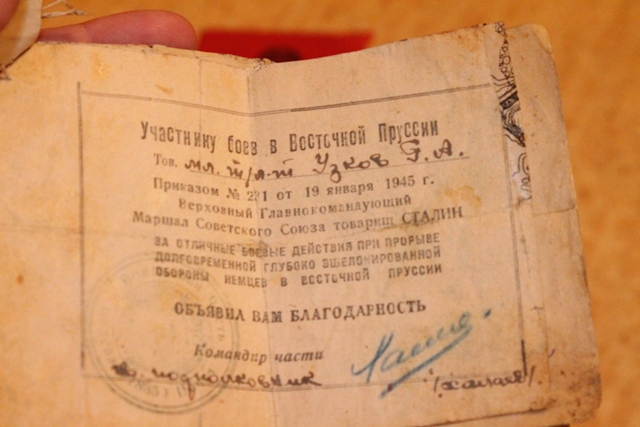 Участнику боев в Восточной Пруссии
Тов. мл. т/л-т Узков Г. А.
Приказом № 221 от 19 января 1945 г.
Верховный Главнокомандующий
Маршал Советского Союза товарищ СТАЛИН
ЗА ОТЛИЧНЫЕ БОЕВЫЕ ДЕЙСТВИЯ ПРИ ПРОРЫВЕ
ДОЛГОВРЕМЕННОЙ ГЛУБОКО ЭШЕЛОНИРОВАННОЙ
ОБОРОНЫ НЕМЦЕВ В ВОСТОЧНОЙ ПРУССИИ
ОБЪЯВИЛ ВАМ БЛАГОДАРНОСТЬ
Командир части
подполковник